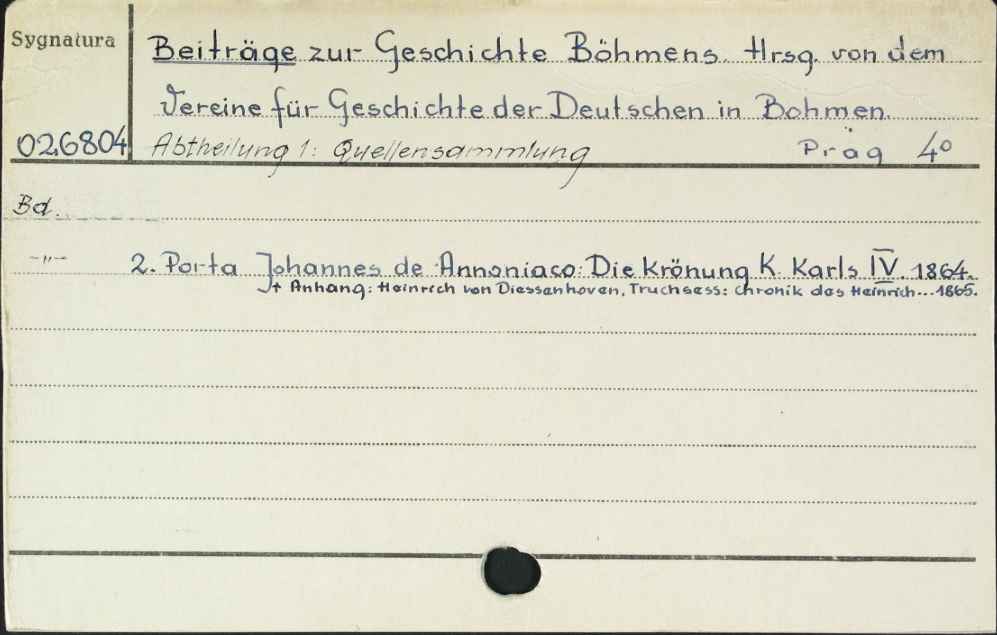 Sygnatura
Beiträge zur Geschichte Böhmens. Hrsg. von dem
Vereine für Geschichte der Deutschen in Bohmen.
026804 Abtheilung 1: Quellensammlung Prag 4°
Bd.
-"- 2. Porta Johannes de Annoniaco: Die Krönung K. Karls IV. 1864.
+ Anhang: Heinrich von Diessenhoven, Truchsess: Chronik des Heinrich... 1865.